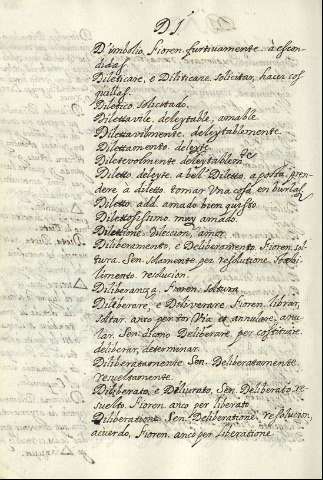 DI.
D'imbolio, Fioren. furtivamente. à escon-
didas.
Dileticare, e Diliticare. solicitar, hacer cos-
quillas.
Diletico. solicitado.
Dilettavile. deleytable, amable
Dilettavilmente. deleytablemente.
Dilettamento. deleyte.
Diletevolmente. deleytablem.te
Diletto. deleyte. a bell Diletto, a posta. pren-
dere a diletto. tomar una cosa en burlas.
Diletto. add. amado bien quisto
Dilettosissimo. muy amado.
Dilettione. Dileccion, amor.
Diliberamento, e Deliberamento. Fioren. sol-
tura. Sen. solamente per resolutione, stabi-
limento. resolucion
Diliberanza. Fioren. soltura.
Diliberare, e Deliverare. Fioren. librar,
soltar. anco per tor via et annulare. anu-
lar. Sen. dicono Deliberare per costituire.
deliberar, determinar.
Diliberatamente. Sen. Deliberatamente
resueltamente
Diliberato, e Diliurato, Sen. Deliberato. re-
suelto. Fioren. anco per liberato
Diliberatione. Sen. Deliberatione. resolucion,
acuerdo. Fioren. anco per liberatione